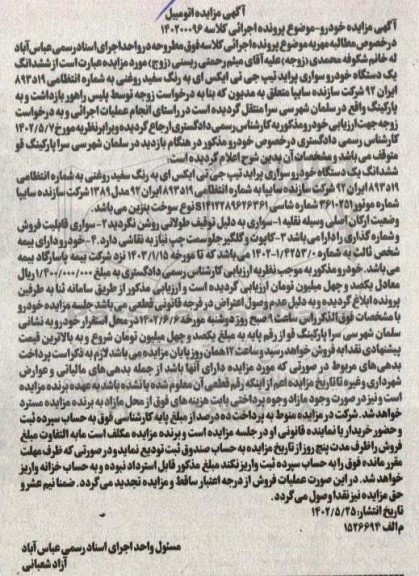 آگهی مزایده اتومبیل
آگهی مزایده خودرو-موضوع پرونده اجرائی کلاسه ۱۴۰۲۰۰۰۹۶
درخصوص مطالبه مهریه موضوع پرونده اجرائی کلاسه فوق مطروحه در واحد اجرای اسناد رسمی عباس آباد
له خانم شکوفه محمدی (زوجه) علیه آقای میثم رحمتی ریسنی (زوج) مورد مزایده عبارت است از ششدانگ
یک دستگاه خودرو سواری پراید تیپ جی تی ایکس ای به رنگ سفید روغنی به شماره انتظامی ۸۹۳۵۱۹
ایران ۹۲ شرکت سازنده سایپا متعلق به مدیون که بنا به درخواست زوجه توسط پلیس راهور بازداشت و به
پارکینگ واقع در سلمان شهر سی سرا منتقل گردیده است در راستای انجام عملیات اجرائی و به درخواست
زوجه جهت ارزیابی خودرو مذکور به کارشناس رسمی دادگستری ارجاع گردیده و برابر نظریه مورخ ۱۴۰۲/۵/۷
کارشناس رسمی دادگستری درخصوص خودرو مذکور در هنگام بازدید در سلمان شهر سی سرا پارکینگ قو
متوقف می باشد و مشخصات آن بدین شرح اعلام گردیده است:
ششدانگ یک دستگاه خودرو سواری پراید تیپ جی تی ایکس ای به رنگ سفید روغنی به شماره انتظامی
۸۹۳۵۱۹ ایران ۹۲ شرکت سازنده سایپا به شماره انتظامی ۸۹۳۵۱۹ ایران ۹۲ مدل ۱۳۸۹ شرکت سازنده سایپا
شماره موتور ۳۶۱۰۲۵۱ شماره شاسی S۱۴۱۲۲۸۹۶۲۶۳۶۱ نوع سوخت بنزین می باشد.
وضعیت ارکان اصلی وسیله نقلیه ۱-سواری به دلیل توقیف طولانی روشن نگردید ۲- سواری قابلیت فروش
و شماره گذاری را دارا می باشد ۳-کاپوت و گلگیر جلو سمت چپ نیاز به نقاشی دارد. ۴-خودرو دارای بیمه
شخص ثالث به شماره ۱۴۰۲/۱۰۴۲۵۳/۰ می باشد که تا مورخه ۱۴۰۳/۱/۱۵ نزد شرکت بیمه پاسارگاد بیمه
می باشد. خودرو مذکور به موجب نظریه ارزیابی کارشناس رسمی دادگستری به مبلغ ۱/۴۰۰/۰۰۰/۰۰۰ ریال
معادل یکصد و چهل میلیون تومان ارزیابی گردیده است و ارزیابی مذکور از طریق سامانه ثنا به طرفین
پرونده ابلاغ گردیده و به دلیل عدم وصول اعتراض در فرجه قانونی قطعی می باشد جلسه مزایده خودرو
با مشخصات فوق الذکر راس ساعت ۹ صبح روز دوشنبه مورخه ۱۴۰۲/۶/۶ در محل استقرار خودرو به نشانی
سلمان شهر سی سرا پارکینگ قو از رقم پایه به مبلغ یکصد و چهل میلیون تومان شروع و به بالاترین قیمت
پیشنهادی نقدا به فروش خواهد رسید و ساعت ۱۲ همان روز پایان مزایده می باشد لازم به ذکر است پرداخت
بدهی های مربوط در صورتی که مورد مزایده دارای آنها باشد از جمله بدهی های مالیاتی و عوارض
شهرداری و غیره تا تاریخ مزایده اعم از اینکه رقم قطعی آن معلوم شده یا نشده باشد به عهده برنده مزایده
است و نیز در صورت وجود مازاد وجوه پرداختی بابت هزینه های فوق از محل مازاد به برنده مزایده مسترد
خواهد شد. شرکت در مزایده منوط به پرداخت ده درصد از مبلغ پایه کارشناسی فوق به حساب سپرده ثبت
و حضور خریدار یا نماینده قانونی او در جلسه مزایده است و برنده مزایده مکلف است مابه التفاوت مبلغ
فروش را ظرف مدت پنج روز از تاریخ مزایده به حساب صندوق ثبت تودیع نماید و در صورتی که ظرف مهلت
مقرر مانده فوق را به حساب سپرده ثبت واریز نکند مبلغ مذکور قابل استرداد نبوده و به حساب خزانه واریز
خواهد شد. در این صورت عملیات فروش از درجه اعتبار ساقط و مزایده تجدید می گردد. ضمنا نیم عشر و
حق مزایده نیز نقدا وصول می گردد.
تاریخ انتشار: ۱۴۰۲/۵/۲۵
م الف ۱۵۲۶۶۹۴
مسئول واحد اجرای اسناد رسمی عباس آباد
آزاد شعبانی